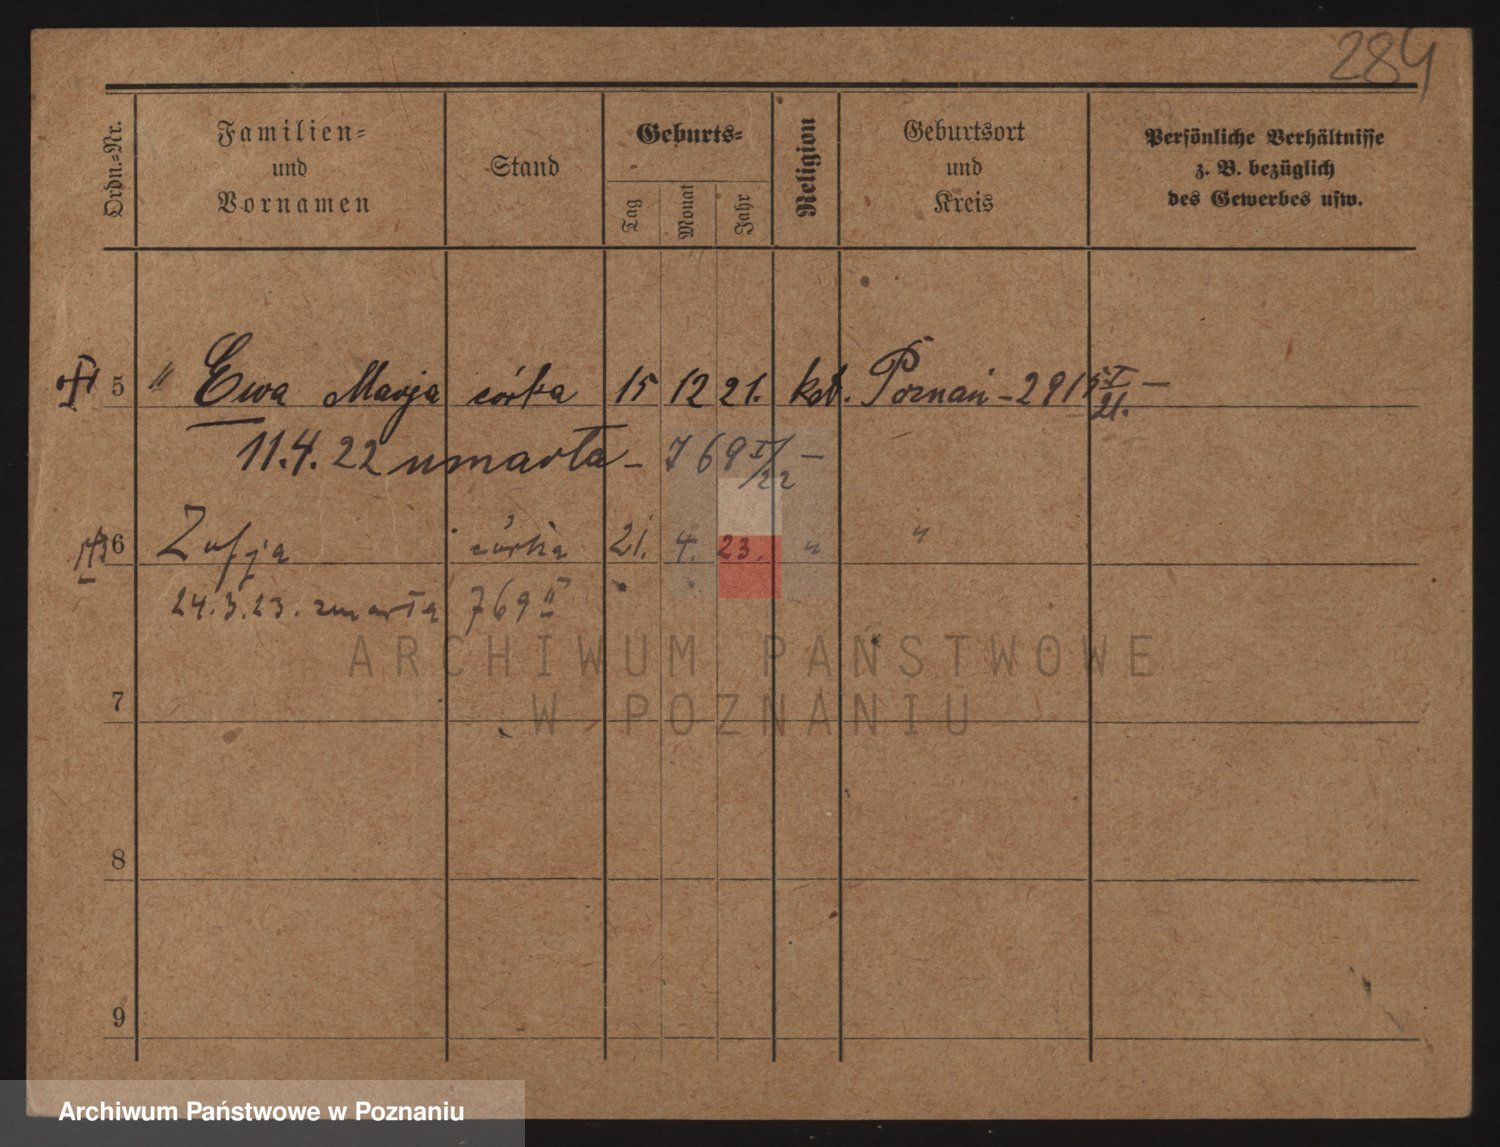 284
Ordn.-Nr.
Familien-
und
Vornamen
Stand
Geburts-
Tag
Monat
Jahr
Religion
Geburtsort
und
Kreis
Persönliche Verhältnisse
z. B. bezüglich
des Gewerbes usw.
5 " Ewa Marja córka 15 12 21. kat. Poznań - 2915 I/21. -
11.4.22 umarła - 769 I/22 -
6 Zofja córka 21. 4. 23. " "
24.3.23. zmarła 769 II
7
8
9
ARCHIWUM PAŃSTWOWE
W POZNANIU
Archiwum Państwowe w Poznaniu